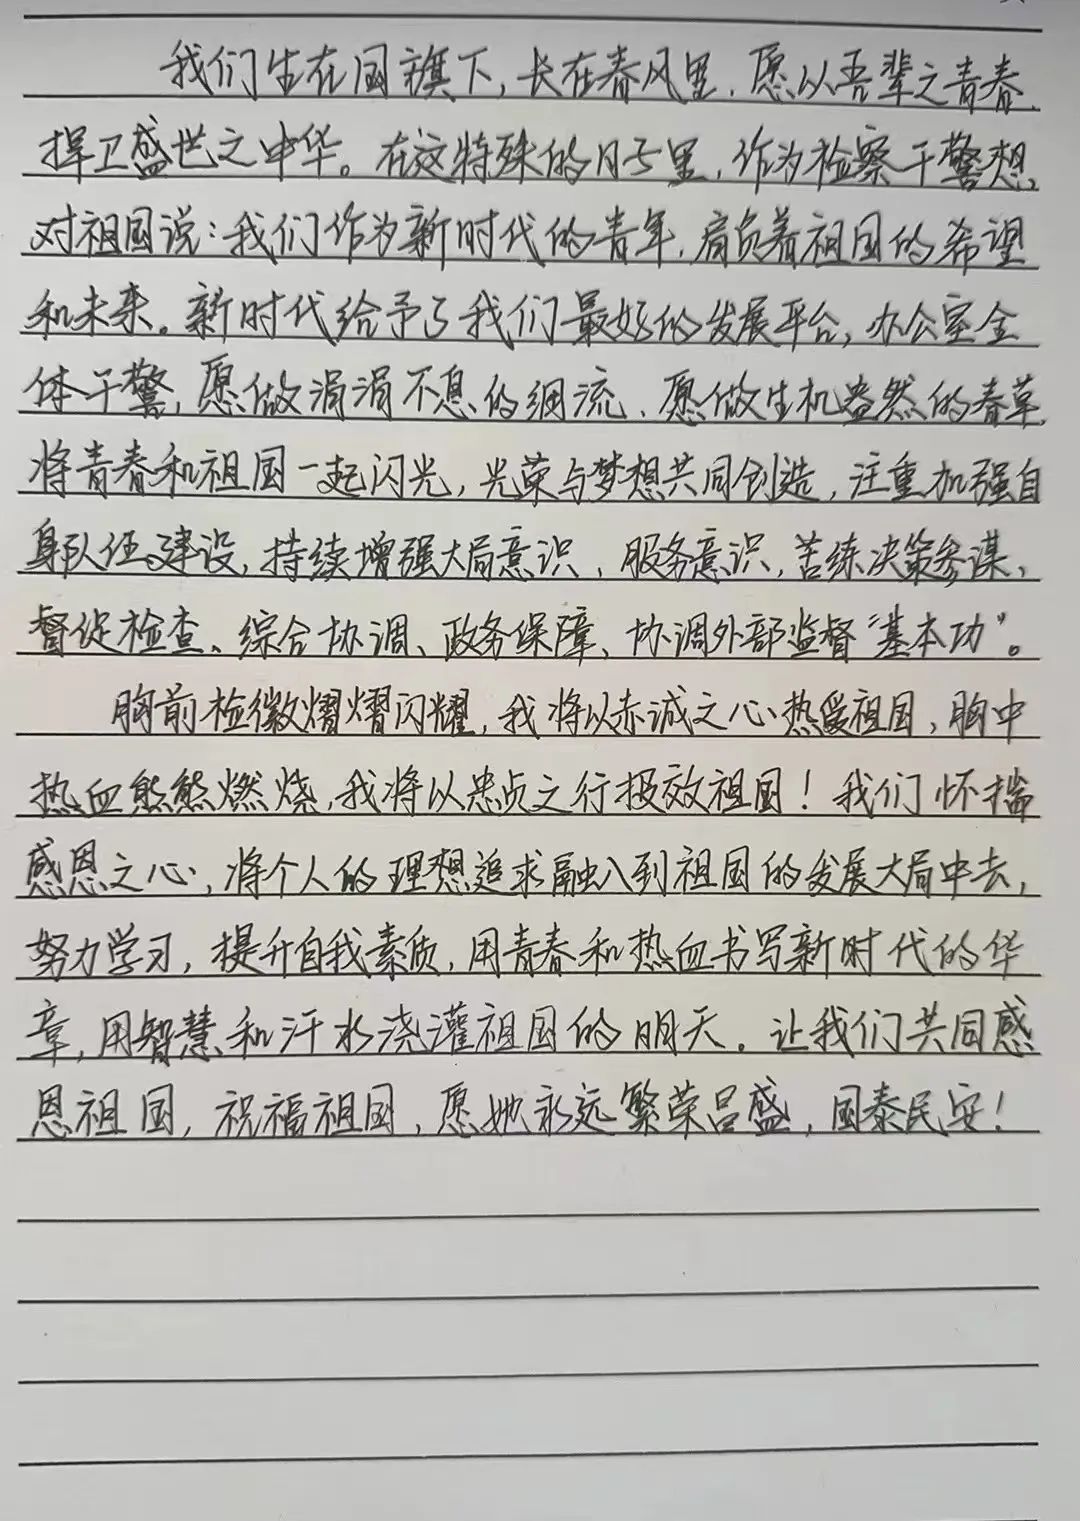 我们生在国旗下，长在春风里，愿以吾辈之青春，
捍卫盛世之中华。在这特殊的日子里，作为检察干警想
对祖国说：我们作为新时代的青年，肩负着祖国的希望
和未来。新时代给予了我们最好的发展平台，办公室全
体干警，愿做涓涓不息的细流、愿做生机盎然的春草，
将青春和祖国一起闪光，光荣与梦想共同创造，注重加强自
身队伍建设，持续增强大局意识、服务意识，苦练决策参谋、
督促检查、综合协调、政务保障、协调外部监督“基本功”。
胸前检徽熠熠闪耀，我将以赤诚之心热爱祖国，胸中
热血熊熊燃烧，我将以忠贞之行报效祖国！我们怀揣
感恩之心，将个人的理想追求融入到祖国的发展大局中去，
努力学习，提升自我素质，用青春和热血书写新时代的华
章，用智慧和汗水浇灌祖国的明天。让我们共同感
恩祖国，祝福祖国，愿她永远繁荣昌盛，国泰民安！